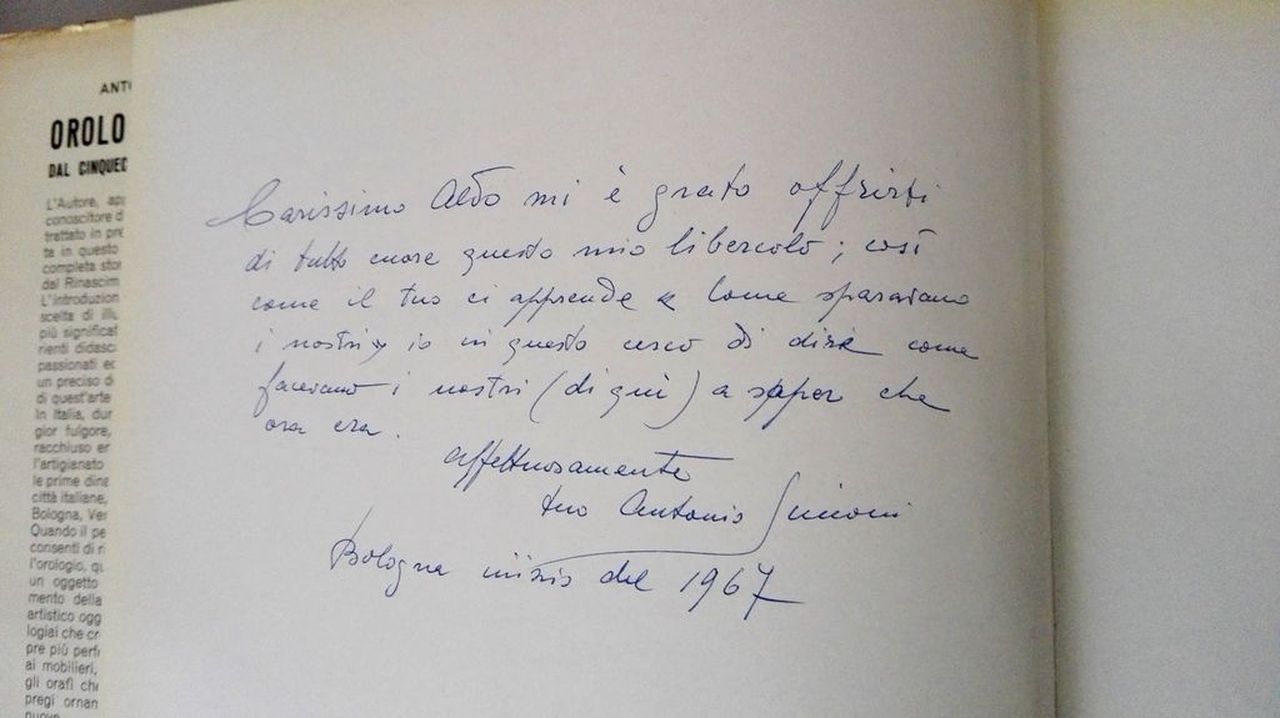 ANTO
OROLO
DAL CINQUEC
L'Autore, ap
conoscitore d
trattato in pre
te in questo
completa stor
dal Rinascim
L'introduzion
scelta di illu
più significat
rienti didasc
passionati ec
un preciso di
di quest'arte
In Italia, dur
gior fulgore,
racchiuso er
l'artigianato
le prime dina
città italiane,
Bologna, Ver
Quando il pe
consentì di ri
l'orologio, qu
un oggetto
mento della
artistico ogg
logiai che cr
pre più perfe
ai mobilieri,
gli orafi che
pregi ornan
nuove
Carissimo Aldo mi è grato offrirti
di tutto cuore questo mio libercolo; così
come il tuo ci apprende come sparavano
i nostri io in questo cerco di dire come
facevano i nostri (di qui) a saper che
ora era.
affettuosamente
tuo Antonio Simoni
Bologna inizio del 1967